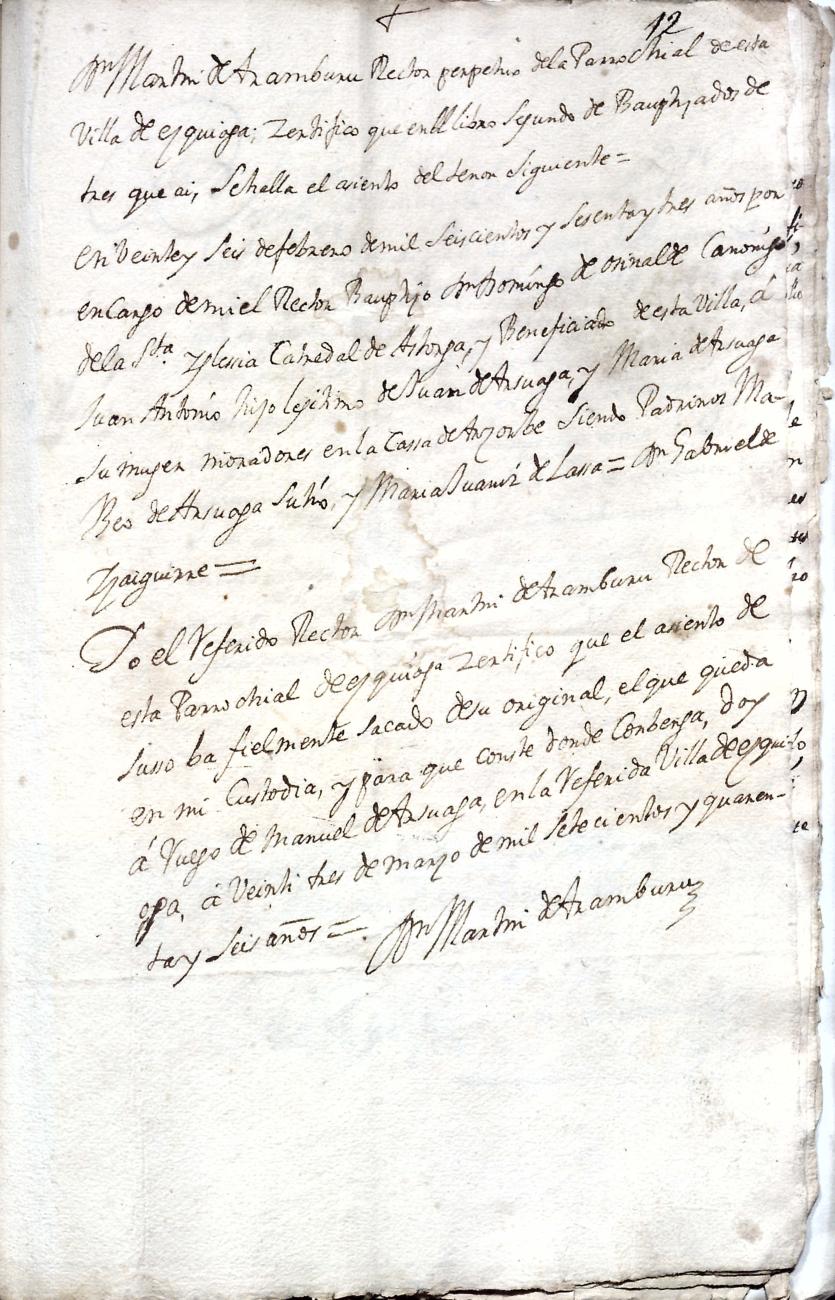 +
12
Dn Martin de Aramburu Rector perpetuo dela Parrochial de esta
Villa de ezquioga; Zertifico que en el libro Segundo de Bauptizados de
tres que ai, Se halla el asiento del tenor siguiente =
En Veinte y Seis de febrero de mil Seiscientos y Sesenta y tres años por
encargo de mi el Rector Bauptizo Dn Domingo de Orinalde Canonigo
de la Sta Yglesia Catredal de Astorga, y Beneficiado de esta Villa, á
Juan Antonio hijo lejitimo de Juan de Arsuaga, y Maria de Arsuaga
su muger moradores en la Cassa de Siendo Padrinos Ma-
theo de Arsuaga Su tio, y Maria Juaniz de Lassa = Dn Gabriel de
Yzaiguirre =
Yo el Referido Rector Dn Martin de Aramburu Rector de
esta Parrochial de ezquioga Zertifico que el asiento de
susso ba fielmente sacado de su original, el que queda
en mi Custodia, y para que conste donde Conbenga, doy
á Ruego de Manuel de Arsuaga, en la Referida Villa de ezqui-
oga, á Veinti tres de marzo de mil Setecientos y quaren-
ta y Seis años = Dn Martin de Aramburu